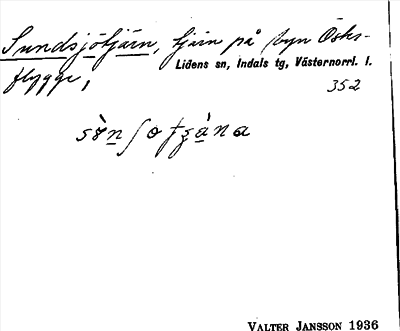 Sundsjötjärn, tjärn på byn Öster-
flygge,
Lidens sn, Indals tg, Västernorrl. l.
352
VALTER JANSSON 1936